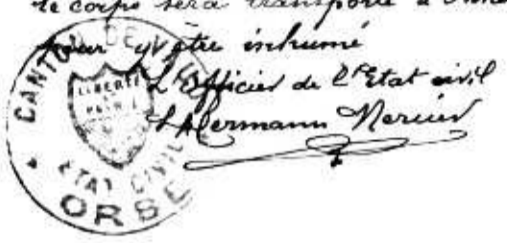 le corps sera transporté à
pour y être inhumé
L'Officier de l'Etat civil
Hermann Mercier
CANTON DE VAUD
LIBERTÉ
ET
PATRIE
ETAT CIVIL
ORBE